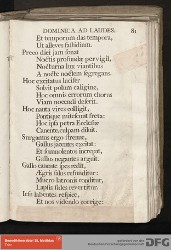 DOMINICA AD LAUDES. 81
Et temporum das tempora,
Ut alleves fastidium.
Preco diei jam sonat
Noctis profundæ pervigil,
Nocturna lux viantibus
A nocte noctem segregans.
Hoc excitatus lucifer
Solvit polum caligine,
Hoc omnis errorum chorus
Viam nocendi deserit.
Hoc nauta vires colligit,
Pontique mitescunt freta:
Hoc ipsa petra Ecclesiæ
Canente, culpam diluit.
Surgamus ergo strenue,
Gallus jacentes excitat:
Et somnolentos increpat,
Gallus negantes arguit.
Gallo canente spes redit,
Ægris salus refunditur:
Mucro latronis conditur,
Lapsis fides revertitur.
Jesu labentes respice,
Et nos videndo corrige: